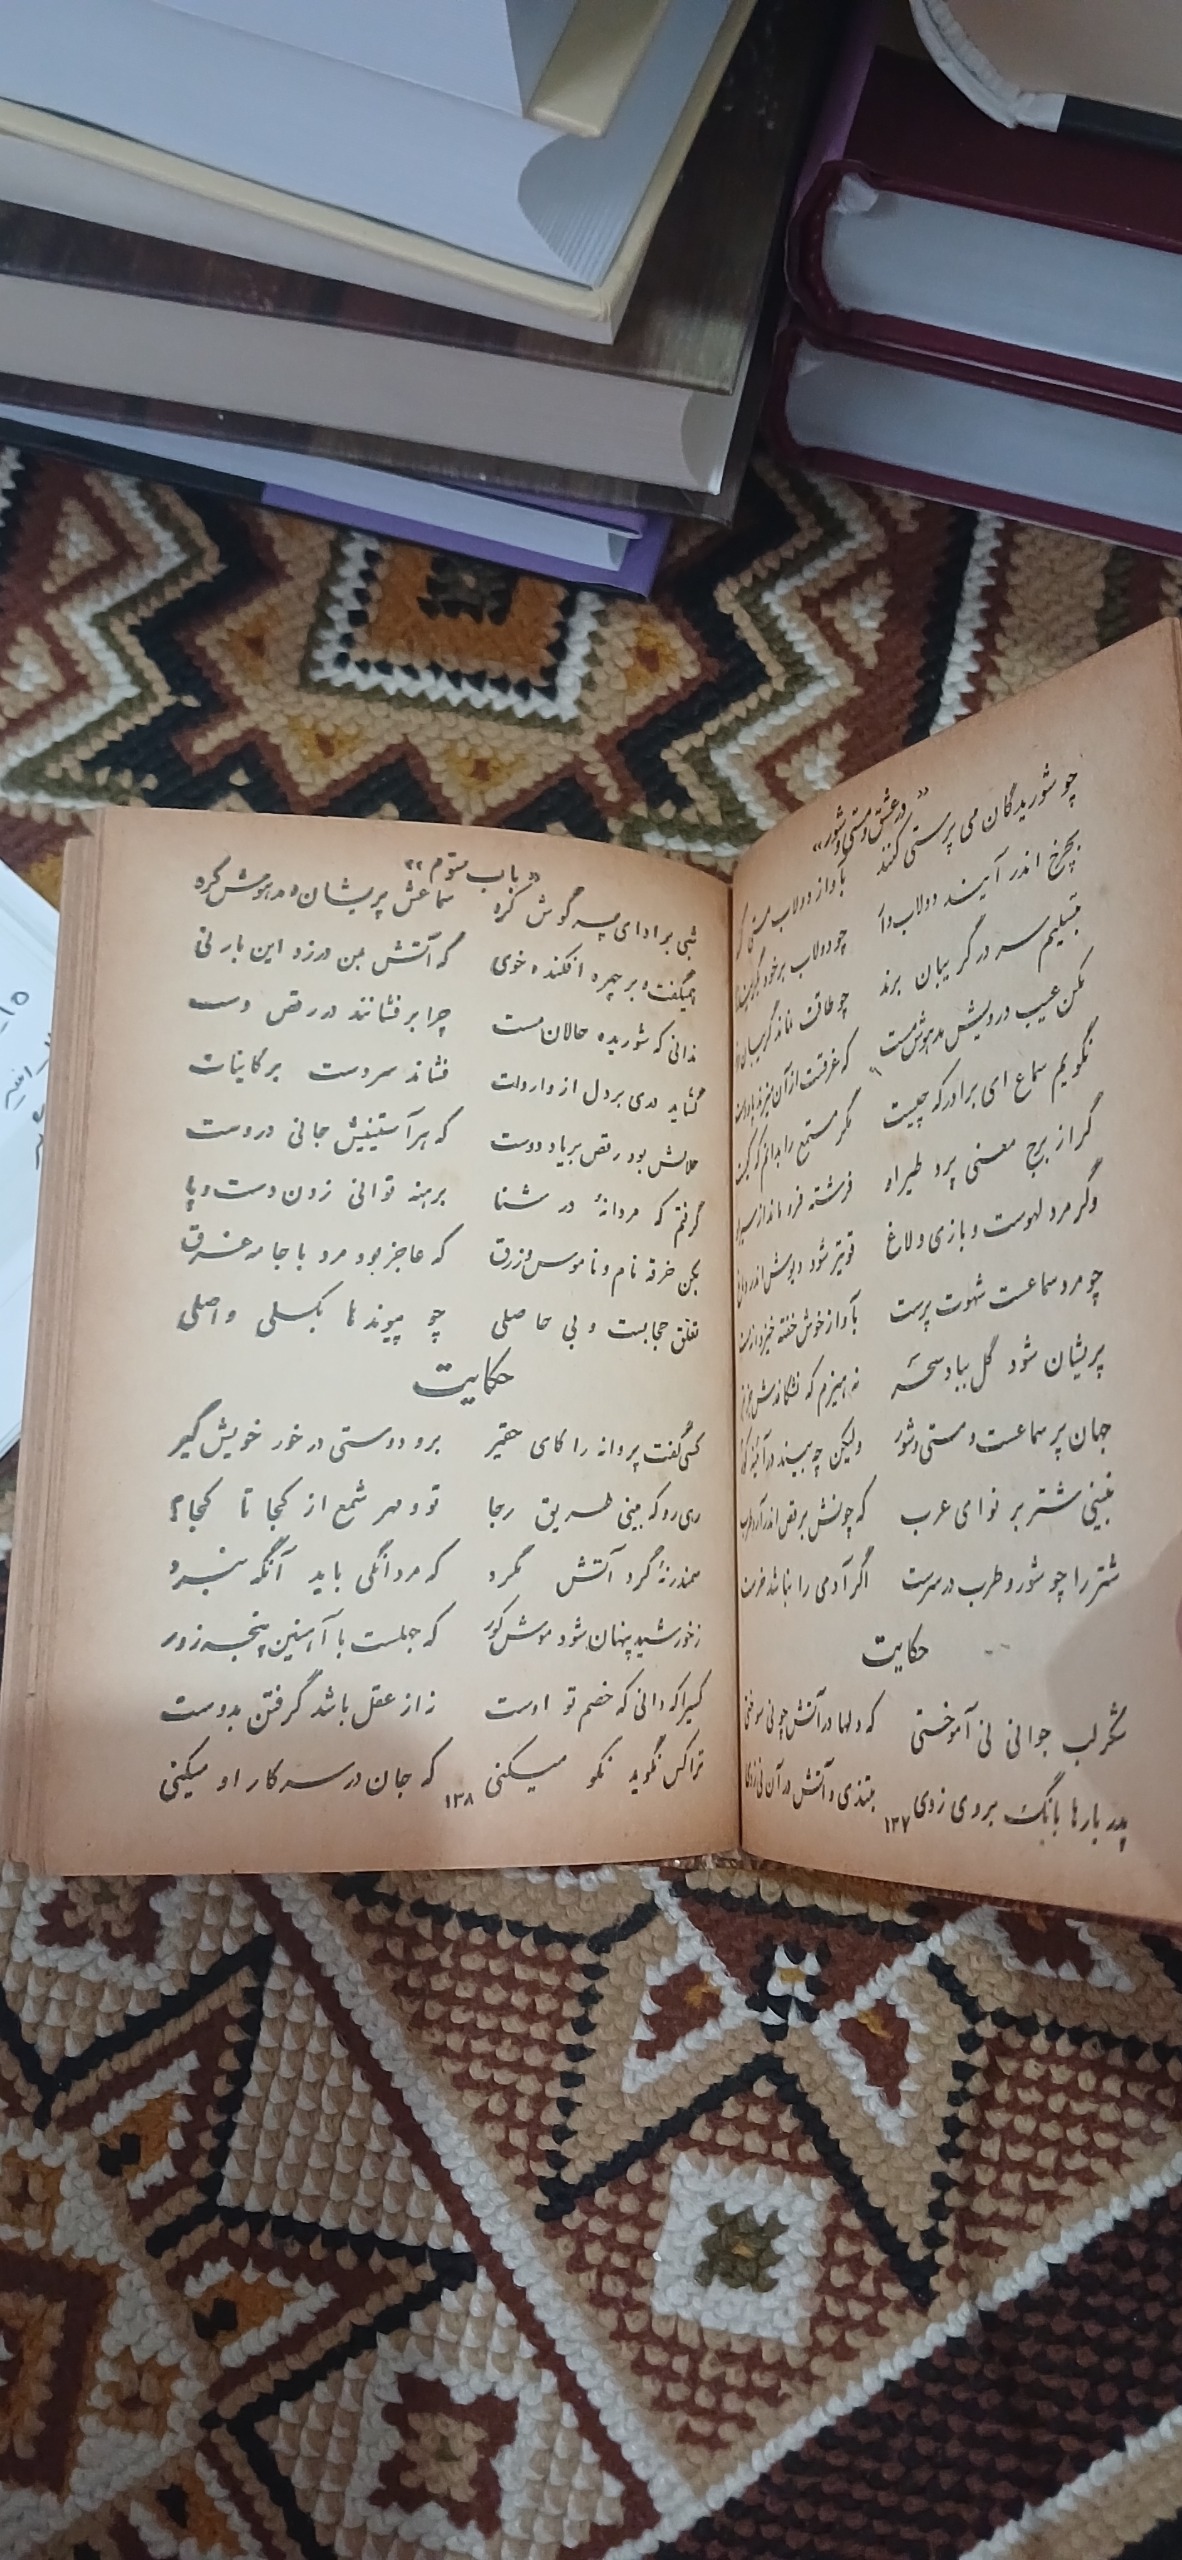 « در عشق و مستی و شور »
چو شوریدگان می پرستی کنند بآواز دولاب مستی
بچرخ اندر آیند دولاب وار چو دولاب بر خود بگریند
بتسلیم سر در گریبان برند چو طاقت نماند گریبان
مکن عیب درویش مدهوش مست که غرقست از آن میزند پا و دست
نگویم سماع ای برادر که چیست مگر مستمع را بدانم که کیست
گر از برج معنی پرد طیر او فرشته فرو ماند از سیر
وگر مرد لهوست و بازی و لاغ قویتر شود دیوش اندر دماغ
چو مرد سماعست شهوت پرست بآواز خوش خفته خیزد
پریشان شود گل بباد سحر نه هیزم که نشکافدش
جهان پر سماعست و مستی و شور ولیکن چه بیند در آئینه
نبینی شتر بر نوای عرب که چونش برقص اندر آرد طرب
شتر را چو شور و طرب در سرست اگر آدمی را نباشد خرست
حکایت
شکر لب جوانی نی آموختی که دلها در آتش چو نی سوختی
پدر بارها بانگ بروی زدی بتندی و آتش در آن نی زدی
۱۳۷
« باب سوم »
شبی بر ادای پسر گوش کرد سماعش پریشان و مدهوش کرد
همیگفت و بر چهره افکنده خوی که آتش بمن در زد این بار نی
ندانی که شوریده حالان مست چرا برفشانند در رقص دست
گشاید دری بر دل از واردات فشاند سر دست بر کاینات
حلالش بود رقص بر یاد دوست که هر آستینیش جانی دروست
گرفتم که مردانهٔ در شنا برهنه توانی زدن دست و پا
بکن خرقه نام و ناموس و زرق که عاجز بود مرد با جامه غرق
تعلق حجابست و بی حاصلی چو پیوندها بگسلی واصلی
حکایت
کسی گفت پروانه را کای حقیر برو دوستی در خور خویش گیر
رهی رو که بینی طریق رجا تو و مهر شمع از کجا تا کجا؟
سمندر نهٔ گرد آتش مگرد که مردانگی باید آنگه نبرد
ز خورشید پنهان شود موش کور که جهلست با آهنین پنجه زور
کسیرا که دانی که خصم تو اوست نه از عقل باشد گرفتن بدوست
ترا کس نگوید نکو میکنی که جان در سر کار او میکنی
۱۳۸